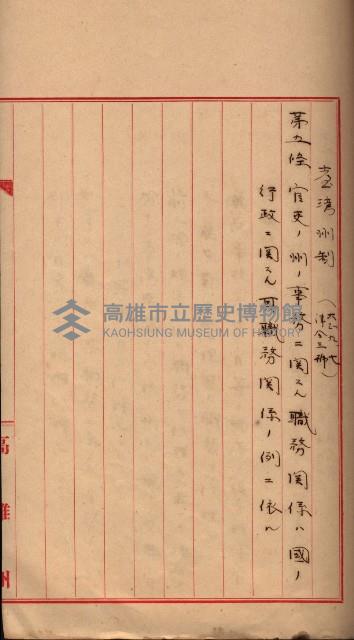 臺灣州制
律令三號
第五條 官吏ノ州ノ事務ニ関スル職務関係ハ國ノ
行政ニ関スル職務関係ノ例ニ依ル
高雄州
高雄市立歷史博物館
KAOHSIUNG MUSEUM OF HISTORY